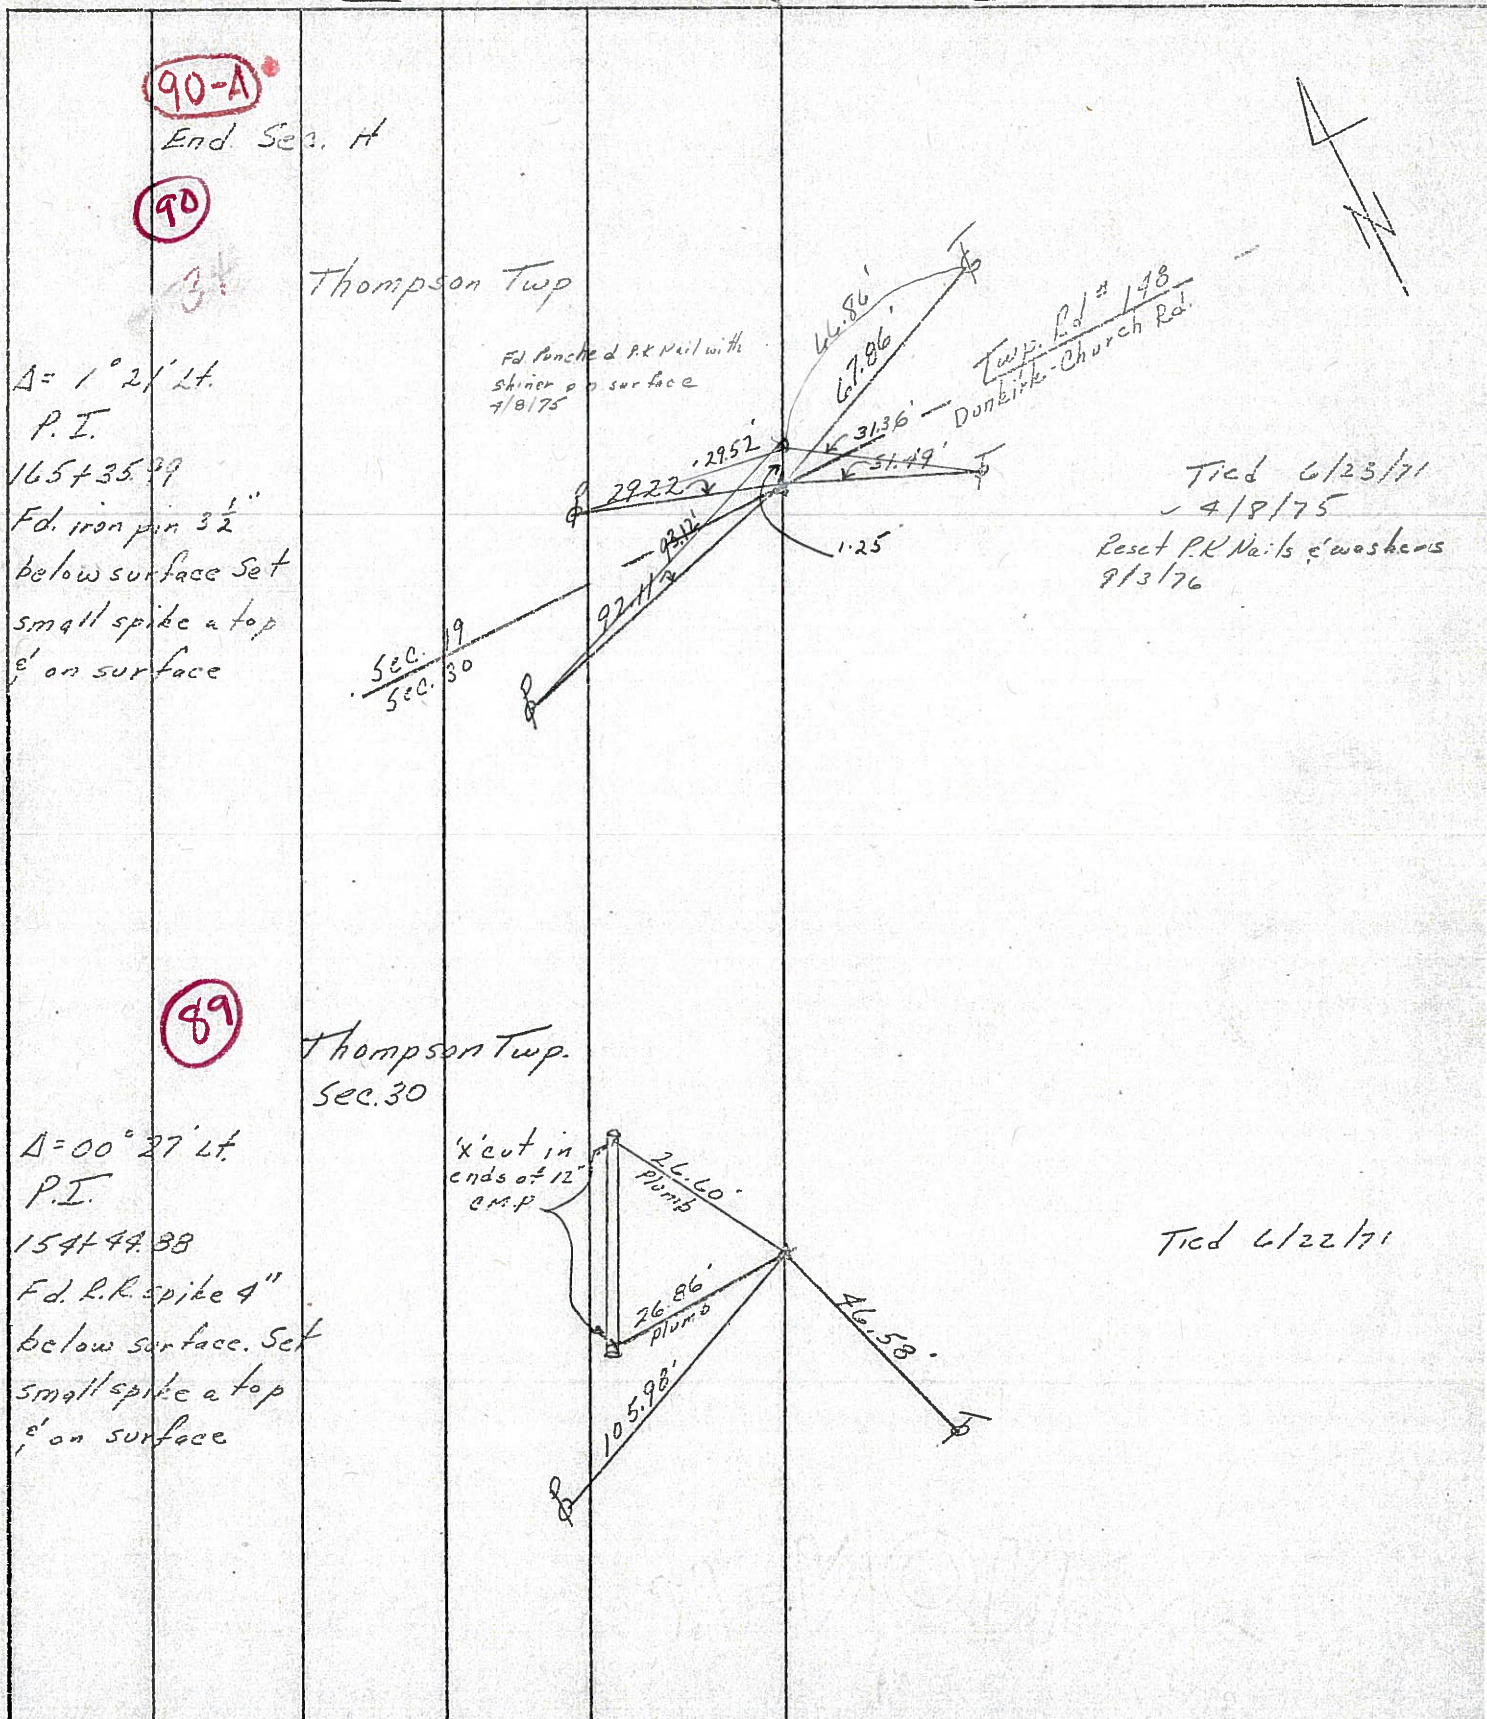 90-A
End. Sec. H
90
Thompson Twp
Δ= 1° 21' Lt.
P.I.
165+35.99
Fd. iron pin 3 1/2"
below surface Set
small spike a top
& on surface
Fd. Punched P.K Nail with
shiner on surface
4/8/75
66.86'
67.86'
Twp. Rd # 148
Dunkirk-Church Rd.
29.52'
29.22
31.36'
31.49'
1.25
93.12'
92.11
Sec. 19
Sec. 30
N
Tied 6/23/71
✓ 4/8/75
Reset P.K Nails & washers
9/3/76
89
Thompson Twp.
Sec. 30
Δ=00° 27' Lt.
P.I.
154+44.88
Fd. R.R. spike 4"
below surface. Set
small spike a top
& on surface
'x' cut in
ends of 12"
C.M.P
26.60'
Plumb
26.86'
Plumb
105.98'
46.58'
Tied 6/22/71